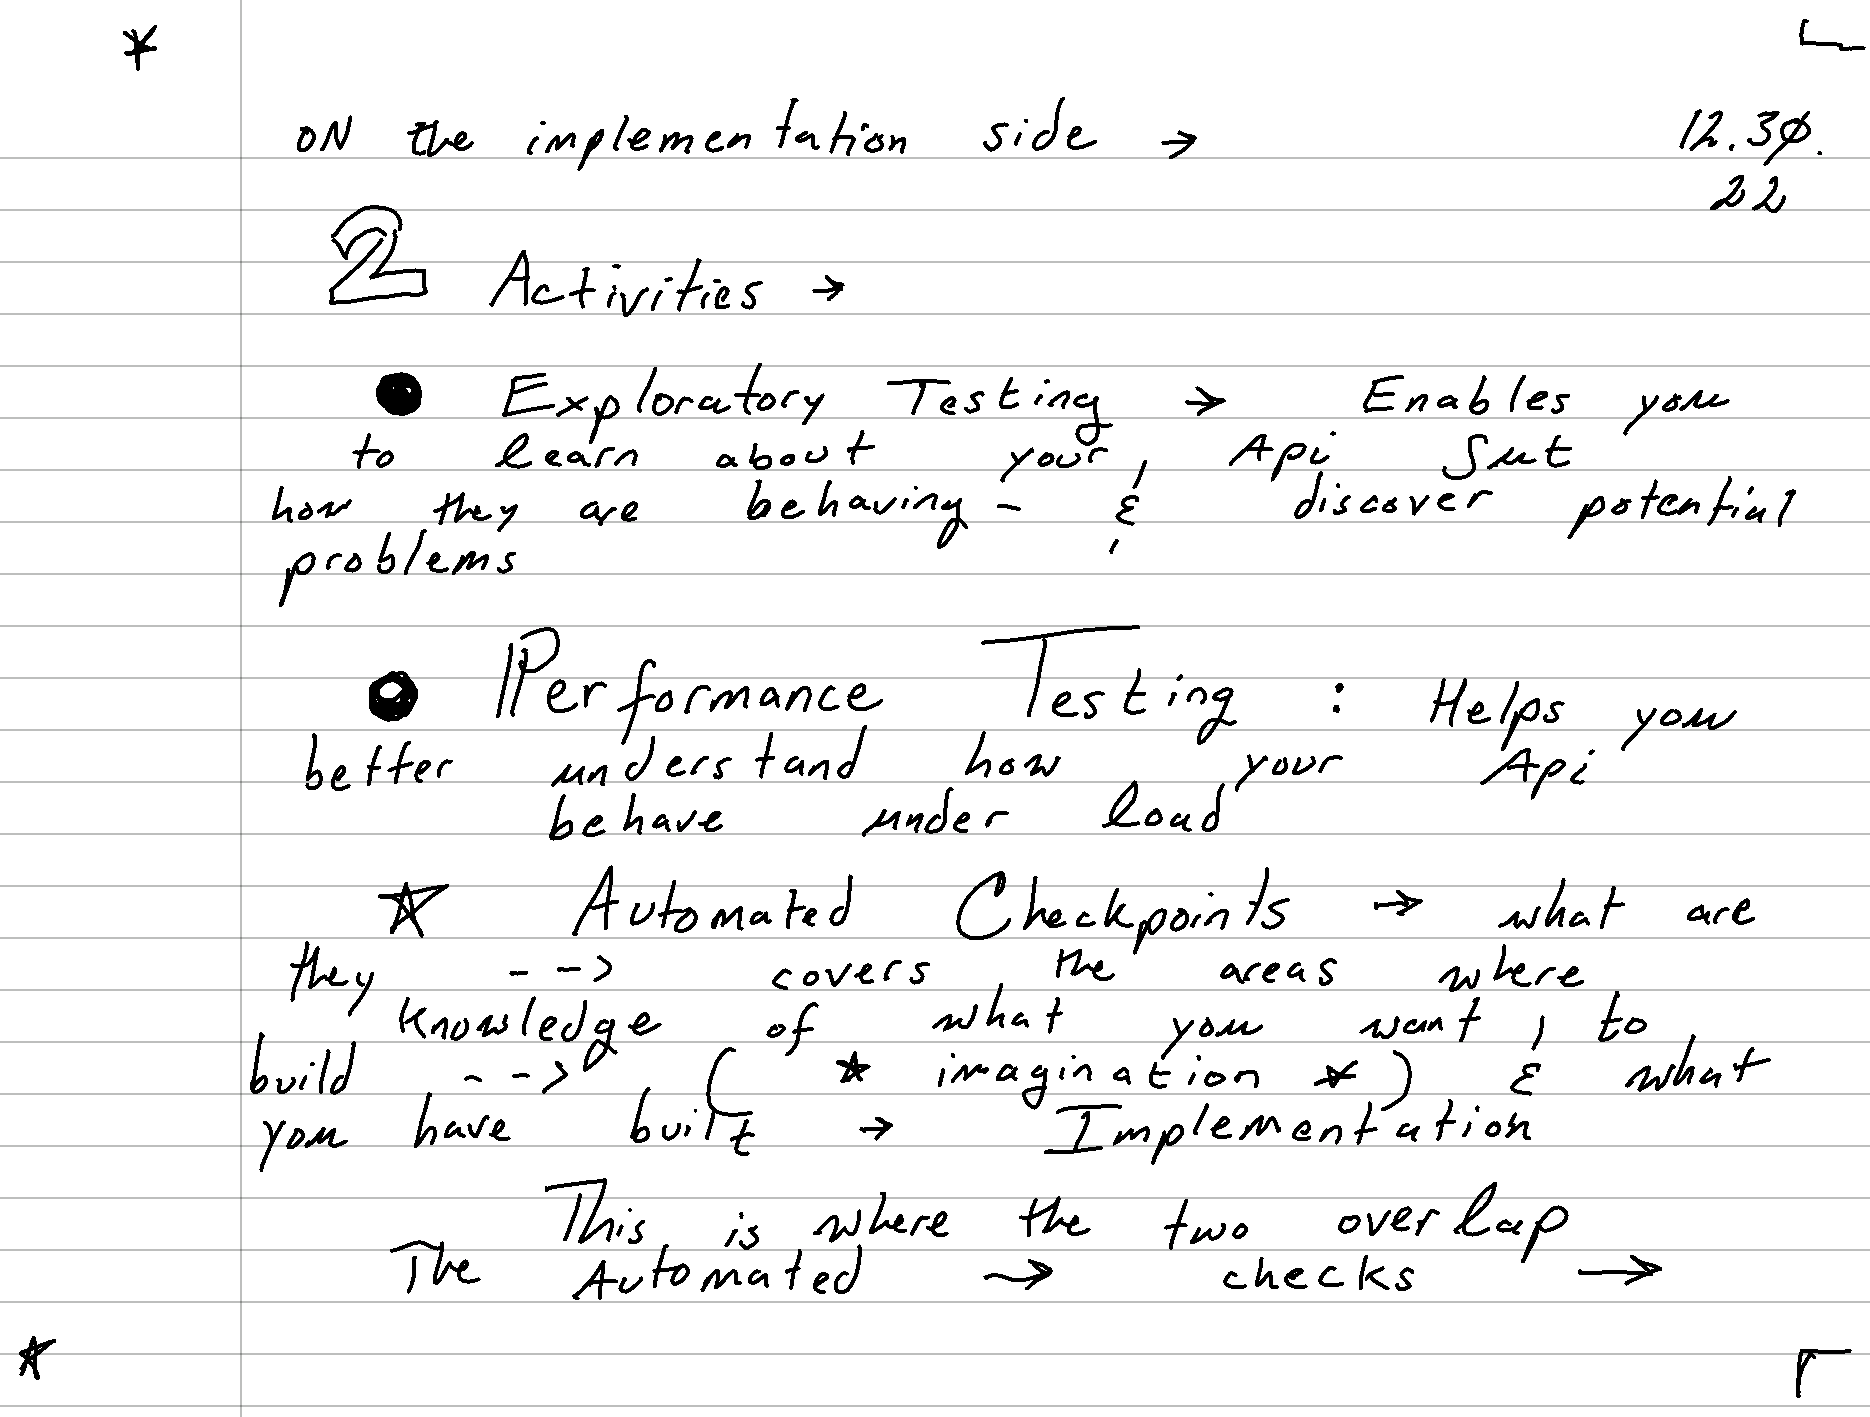 ON the implementation side →
12.3Ø.
22
2 Activities →
● Exploratory Testing → Enables you
to learn about your, Api Sut
how they are behaving - & discover potential
problems
● Performance Testing : Helps you
better understand how your Api
behave under load
☆ Automated Checkpoints → what are
they --> covers the areas where
knowledge of what you want, to
build --> ( * imagination * ) & what
you have built → Implementation
This is where the two overlap
The Automated → checks →